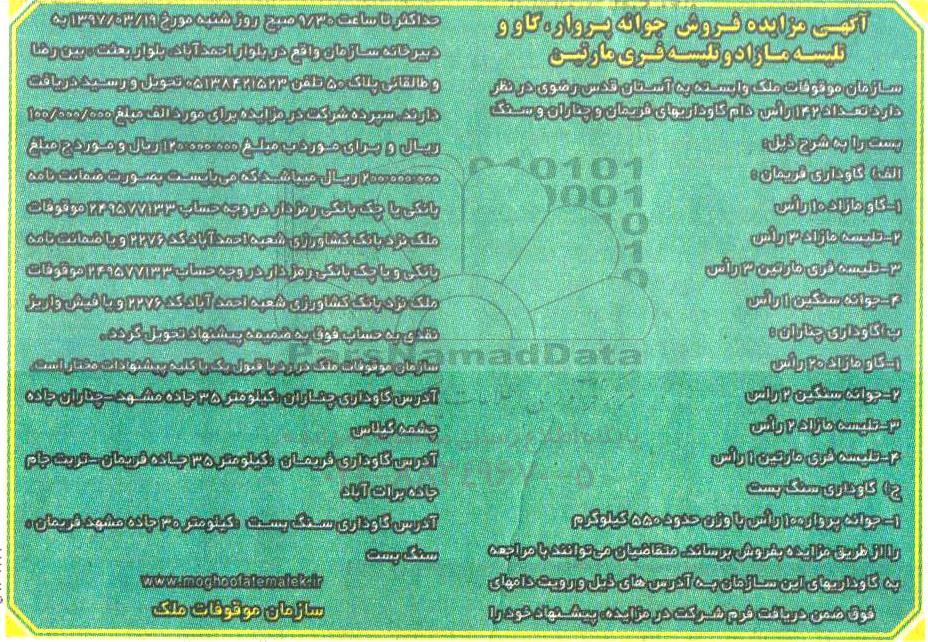 آگهی مزایده فروش جوانه پروار، گاو و
تلیسه مازاد و تلیسه فری مارتین
سازمان موقوفات ملک وابسته به آستان قدس رضوی در نظر
دارد تعداد ۱۴۲ رأس دام گاوداریهای فریمان و چناران و سنگ
بست را به شرح ذیل:
الف) گاوداری فریمان :
۱-گاو مازاد ۱۰ رأس
۲-تلیسه مازاد ۳ رأس
۳-تلیسه فری مارتین ۳ رأس
۴-جوانه سنگین ۱ رأس
ب)گاوداری چناران :
۱-گاو مازاد ۲۰ رأس
۲-جوانه سنگین ۲ راس
۳-تلیسه مازاد ۲ رأس
۴-تلیسه فری مارتین ۱ رأس
ج) گاوداری سنگ بست
۱-جوانه پروار ۱۰۰ رأس با وزن حدود ۵۵۰ کیلوگرم
را از طریق مزایده بفروش برساند. متقاضیان می‌توانند با مراجعه
به گاوداریهای این سازمان به آدرس های ذیل و رویت دامهای
فوق ضمن دریافت فرم شرکت در مزایده، پیشنهاد خود را
حداکثر تا ساعت ۹/۳۰ صبح روز شنبه مورخ ۱۳۹۷/۰۳/۱۹ به
دبیرخانه سازمان واقع در بلوار احمدآباد، بلوار بعثت ، بین رضا
و طالقانی پلاک ۵۰ تلفن ۰۵۱۳۸۴۲۱۵۲۳ تحویل و رسید دریافت
دارند. سپرده شرکت در مزایده برای مورد الف مبلغ ۱۰۰/۰۰۰/۰۰۰
ریال و برای مورد ب مبلغ ۱۲۰،۰۰۰،۰۰۰ ریال و مورد ج مبلغ
۲۰۰،۰۰۰،۰۰۰ ریال میباشد که می‌بایست بصورت ضمانت نامه
بانکی یا چک بانکی رمزدار در وجه حساب ۲۴۹۵۷۷۱۳۳ موقوفات
ملک نزد بانک کشاورزی شعبه احمدآباد کد ۲۲۷۶ و یا ضمانت نامه
بانکی و یا چک بانکی رمز دار در وجه حساب ۲۴۹۵۷۷۱۳۳ موقوفات
ملک نزد بانک کشاورزی شعبه احمد آباد کد ۲۲۷۶ و یا فیش واریز
نقدی به حساب فوق به ضمیمه پیشنهاد تحویل گردد.
سازمان موقوفات ملک در رد یا قبول یک یا کلیه پیشنهادات مختار است.
آدرس گاوداری چناران :کیلومتر ۳۵ جاده مشهد -چناران جاده
چشمه گیلاس
آدرس گاوداری فریمان :کیلومتر ۳۵ جاده فریمان -تربت جام
جاده برات آباد
آدرس گاوداری سنگ بست :کیلومتر ۳۰ جاده مشهد فریمان ،
سنگ بست
www.moghoofatemalek.ir
سازمان موقوفات ملک
ParsNamadData